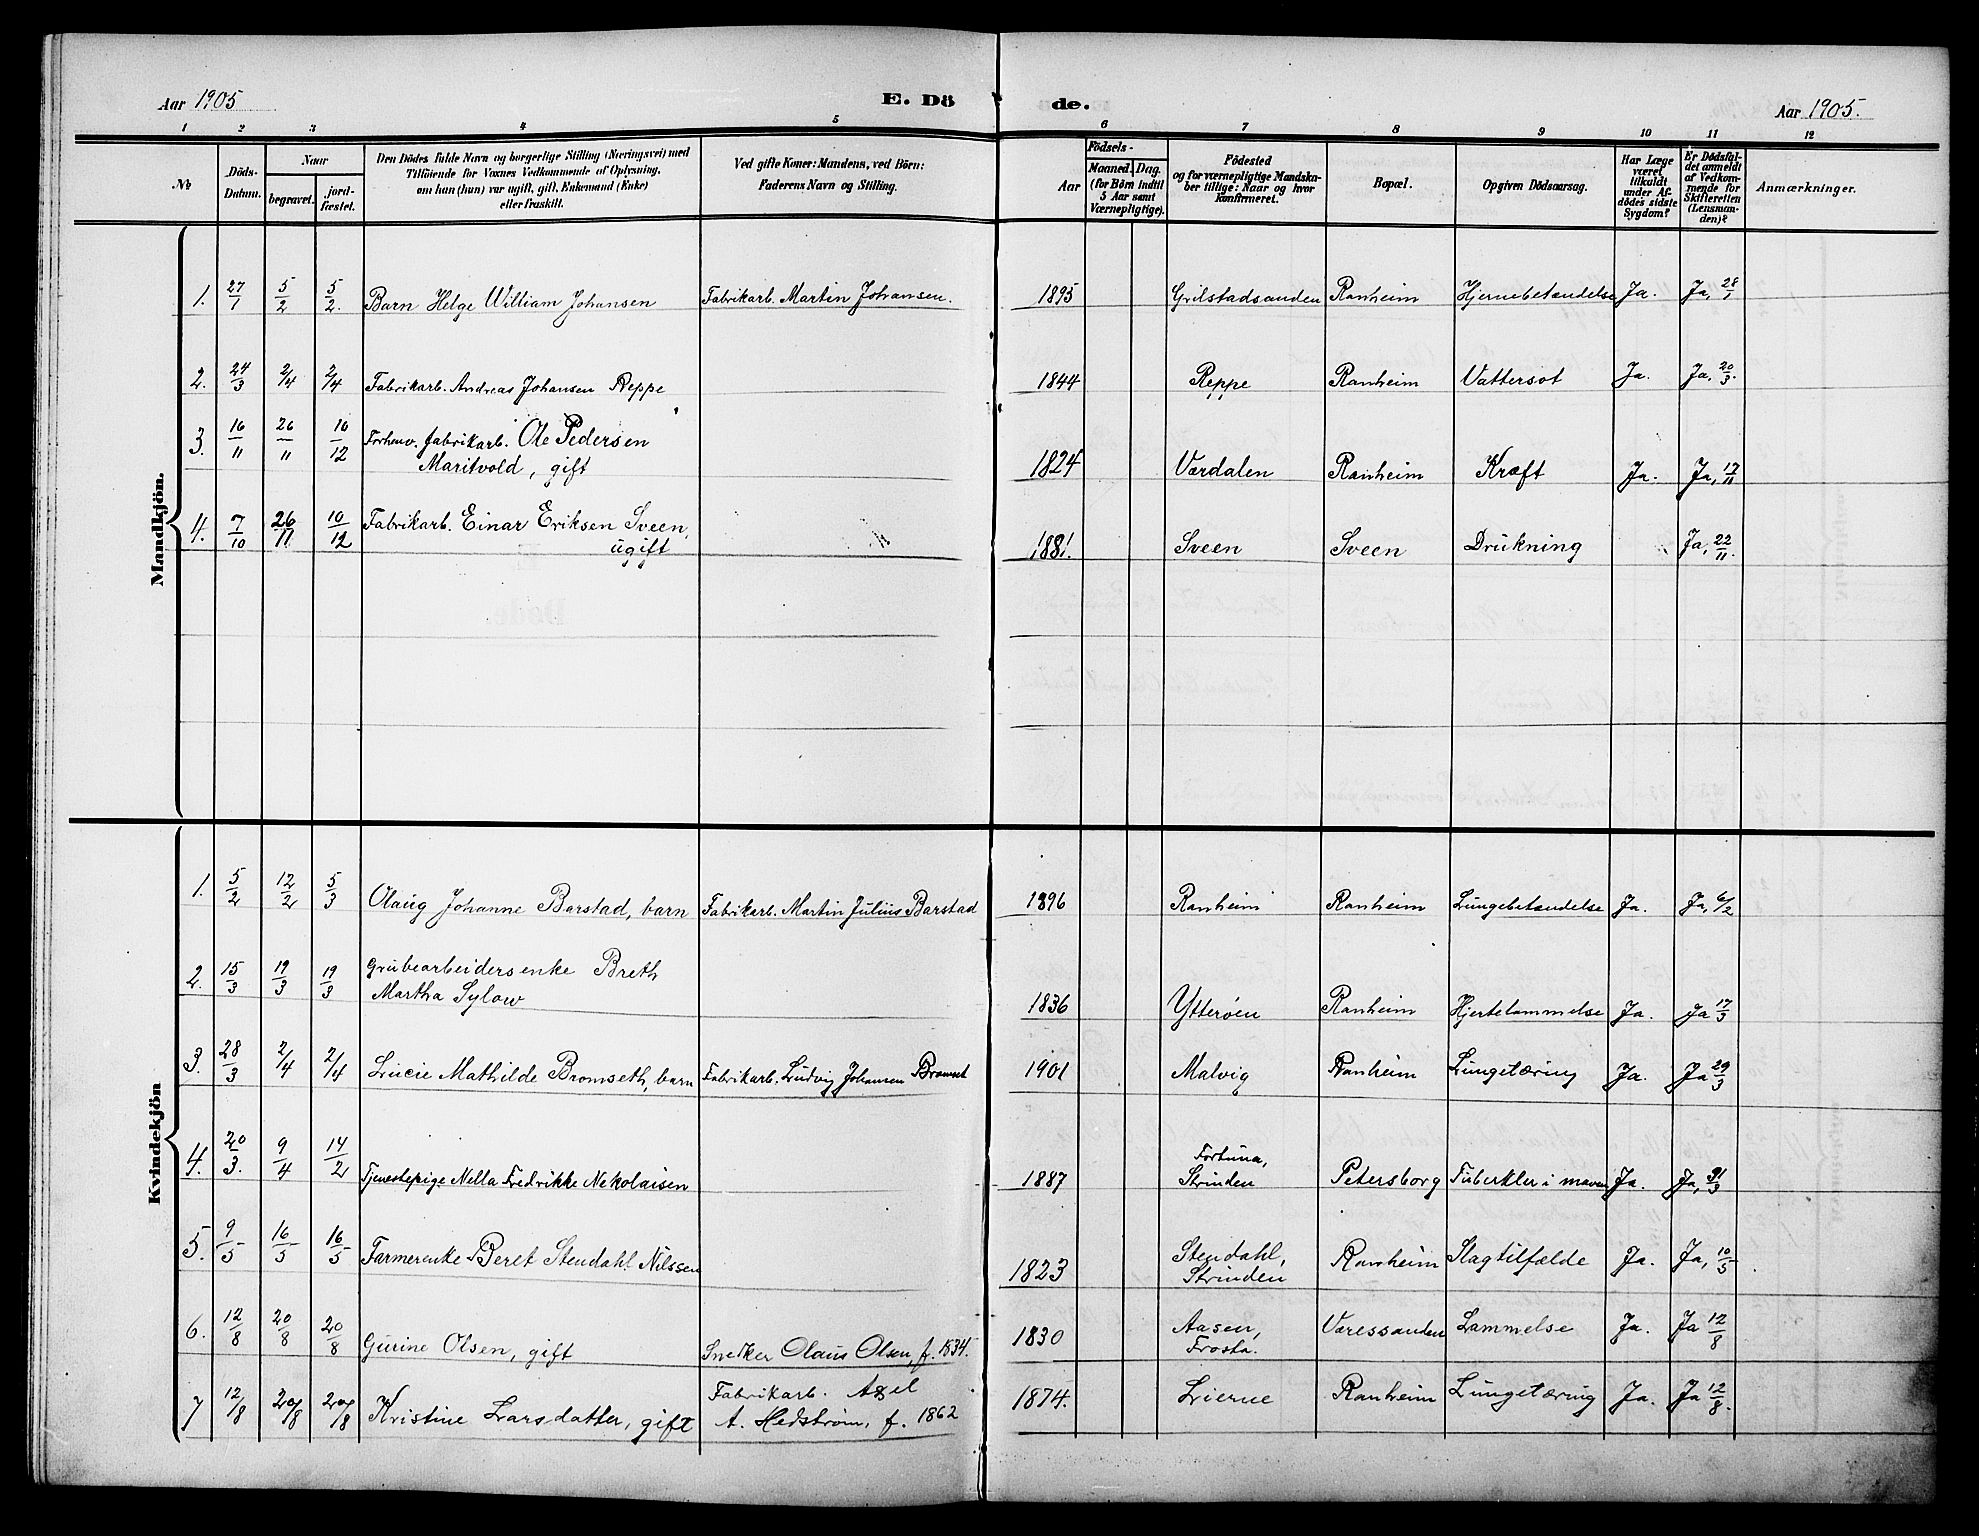 Aar 1905
E. Dö de.
Aar 1905.
1 2 3 4 5 6 7 8 9 10 11 12
№
Döds-Datum.
Naar
begravet.
jord-fæstet.
Den Dödes fulde Navn og borgerlige Stilling (Næringsvei) med
Tilföiende for Voxnes Vedkommende af Oplysning,
om han (hun) var ugift, gift, Enkemand (Enke)
eller fraskilt.
Ved gifte Koner: Mandens, ved Börn:
Faderens Navn og Stilling.
Födsels-
Aar
Maaned. Dag.
(for Börn indtil
5 Aar samt
Værnepligtige).
Födested
og for værnepligtige Mandska-
ber tillige: Naar og hvor
konfirmeret.
Bopæl.
Opgiven Dödsaarsag.
Har Læge
været
tilkaldt
under Af-
dödes sidste
Sygdom?
Er Dödsfal-
det anmeldt
af Vedkom-
mende for
Skifteretten
(Lensman-
den)?
Anmærkninger.
Mandkjön.
1. 27/1 5/2 5/2. Barn Helge William Johansen Fabrikarb. Martin Johansen. 1895 Grilstadsanden Ranheim Hjernebetændelse Ja. Ja, 28/1
2. 24/3 2/4 2/4 Fabrikarb. Andreas Johansen Reppe 1844 Reppe Ranheim Vattersot Ja. Ja, 20/3.
3. 16/11 26/11 10/12 Forhenv. fabrikarb. Ole Pedersen
Maritvold, gift 1824 Værdalen Ranheim Kræft Ja. Ja, 17/11
4. 7/10 26/11 10/12 Fabrikarb. Einar Eriksen Sveen,
ugift 1881. Sveen Sveen Drukning Ja, 22/11.
Kvindekjön
1. 5/2 12/2 5/3 Olaug Johanne Barstad, barn Fabrikarb. Martin Julius Barstad 1896 Ranheim Ranheim Lungebetændelse Ja. Ja, 6/2
2. 15/3 19/3 19/3 Grubearbeidersenke Breth
Martha Sylow 1836 Ytterøen Ranheim Hjertelammelse Ja. Ja 17/3
3. 28/3 2/4 2/4 Lucie Mathilde Bromseth, barn Fabrikarb. Ludvig Johansen Bromset 1901 Malvig Ranheim Lungetæring Ja. Ja 29/3
4. 20/3. 9/4 14/2 Tjenestepige Nella Fredrikke Nekolaisen 1887 Fortuna,
Strinden Petersborg Tuberkler i maven Ja. Ja, 31/3
5. 9/5 16/5 16/5 Farmerenke Beret Stendahl Nilssen 1823 Stendahl,
Strinden Ranheim Slagtilfælde Ja. Ja, 10/5
6. 12/8 20/8 20/8 Gurine Olsen, gift Snedker Olaus Olsen, f. 1834. 1830 Aasen,
Frosta. Væressanden Lammelse Ja. Ja 12/8
7 12/8 20/8 20/8 Kristine Larsdatter, gift Fabrikarb. Axel
A. Hedstrøm, f. 1862 1874. Lierne Ranheim Lungetæring Ja. Ja 12/8.